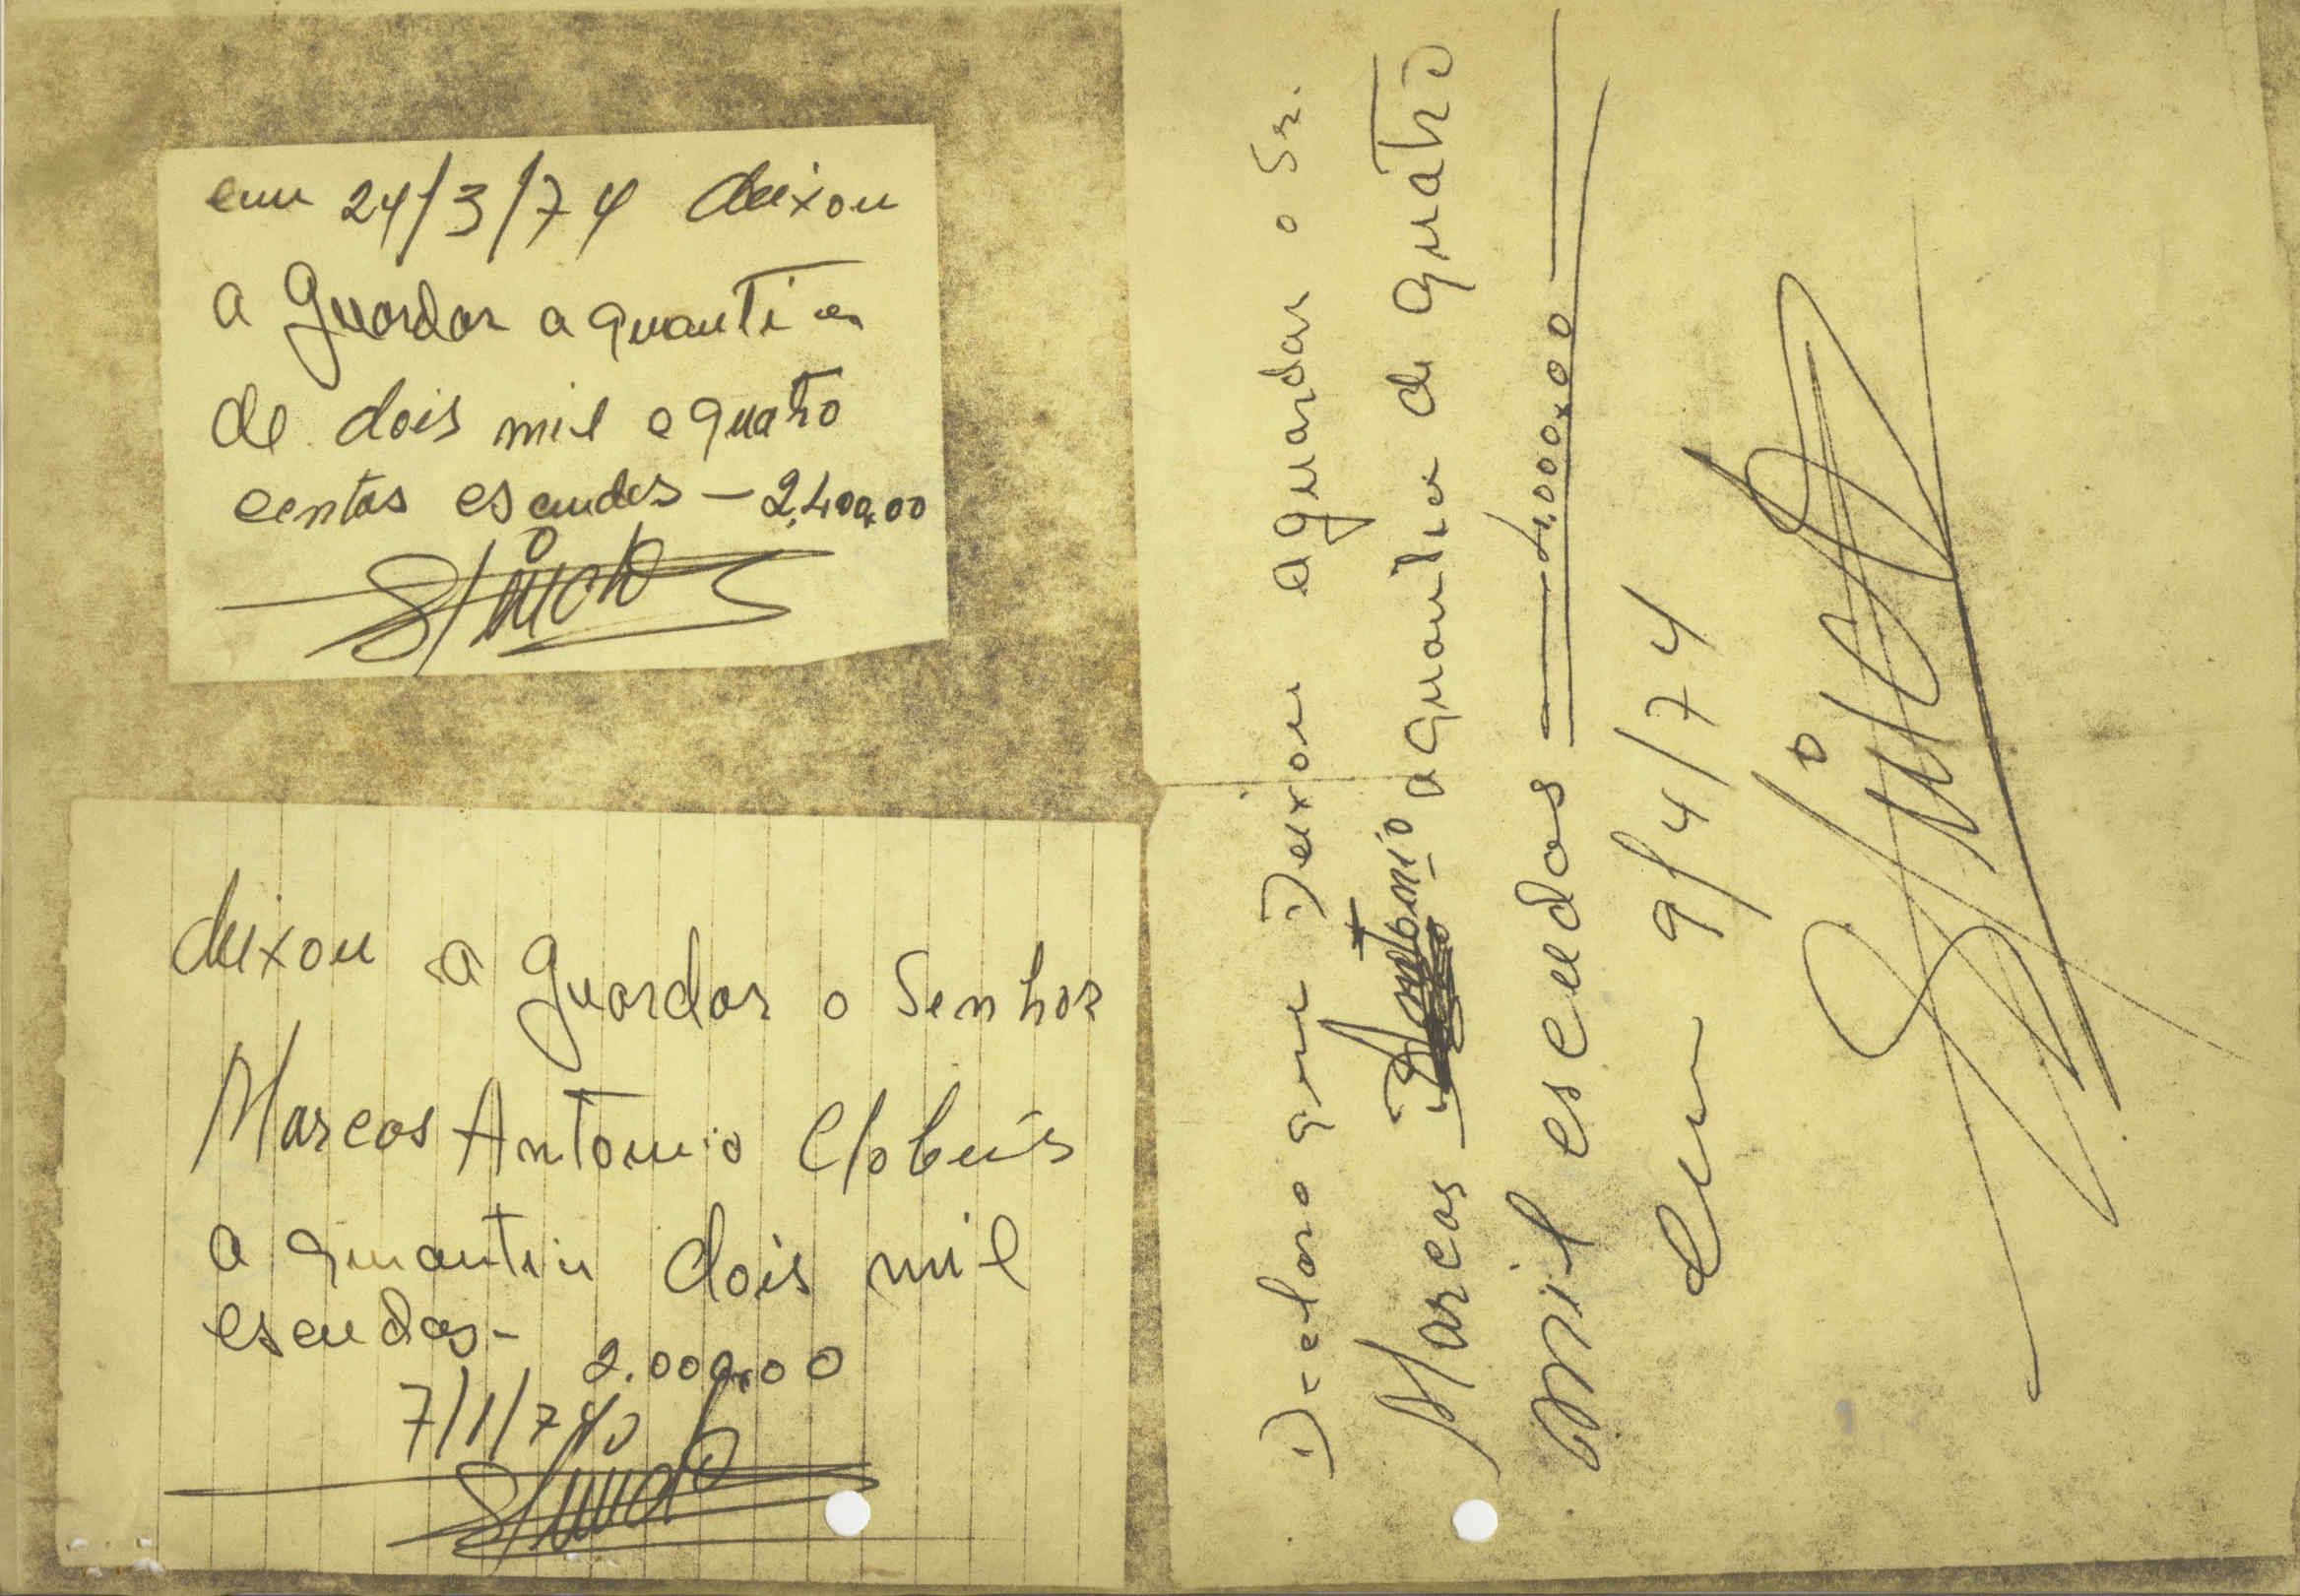 em 24/3/74 deixou
a guardar a quantia
de dois mil e quatro
centos escudos — 2.400,00
deixou a guardar o Senhor
Marcos Antonio Clobeús
a quantia dois mil
escudos -
2.000,00
7/1/74
Declaro que Deixou a guardar o Sr.
Marcos Antonio a quantia de quatro
mil escudos — 4.000,00 —
em 9/4/74